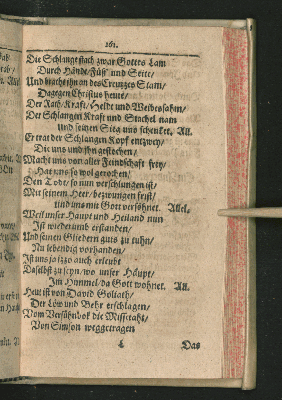 161.
Die Schlange stach zwar Gottes Lam
Durch Hände/Füß' und Seite/
Und bracht ihn an des Creutzes Stam/
Dagegen Christus heute/
Der Rath/Kraft/Heldt und Weibessahm/
Der Schlangen Kraft und Stachel nam
und seinen Sieg uns schenket. All.
Er trat der Schlangen Kopf entzwey/
Die uns und ihn gestochen/
Macht uns von aller Feindschaft frey/
Hat uns so wol gerochen/
Den Todt/so nun verschlungen ist/
Mit seinem Heer/bezwungen frist/
und uns mit Gott versöhnet. Allel.
Weil unser Haupt und Heiland nun
Ist wiederumb erstanden/
Und seinen Gliedern guts zu tuhn/
Nu lebendig vorhanden/
Ist uns ja itzo auch erleubt
Daselbst zu seyn/wo unser Häupt/
Im Himmel/da Gott wohnet. All.
Heut ist von David Goliath/
Der Löw und Behr erschlagen/
Vom Versühnbok die Missetaht/
Von Simson weggetragen
L
Das